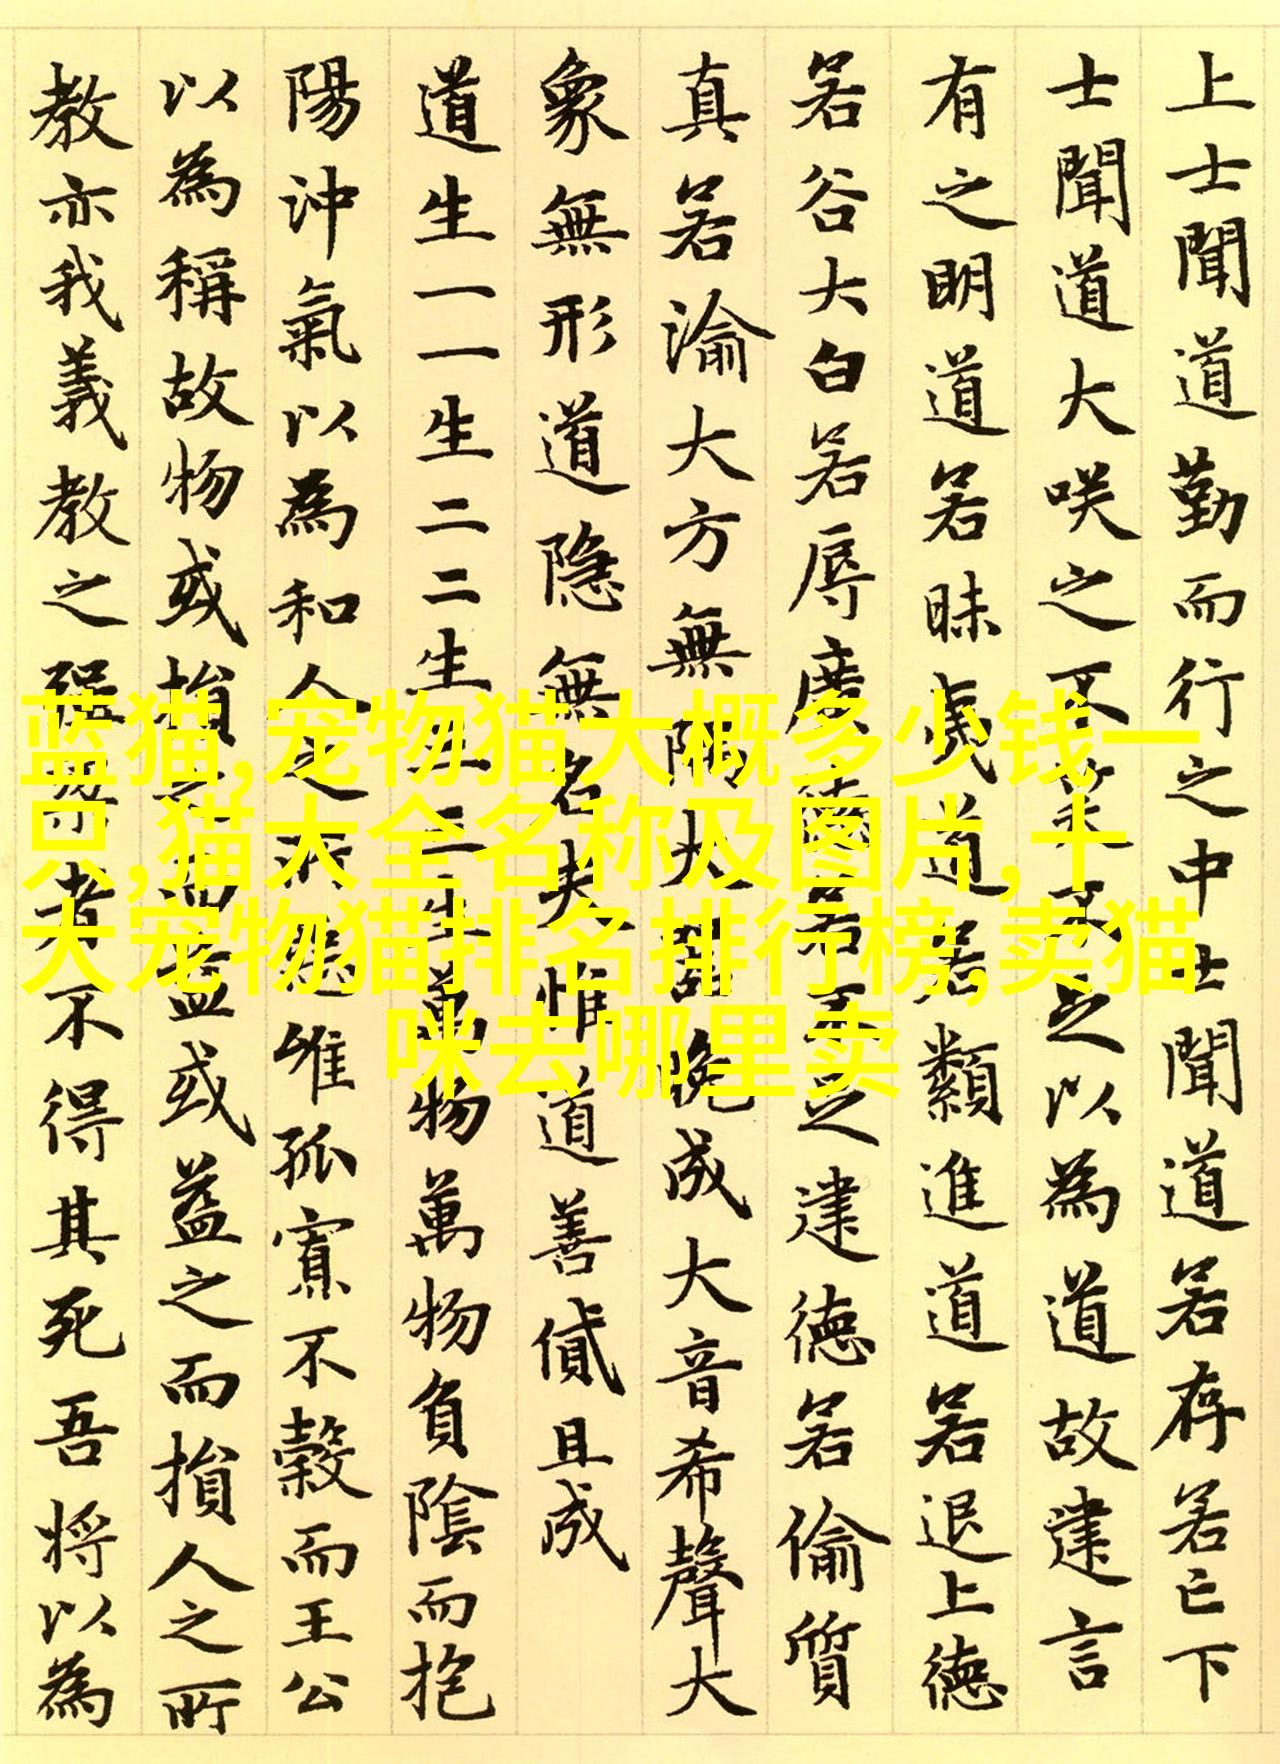 上士聞道勤而行之中士聞道若存若亡下
士聞道大咲之不笑不足以為道故建言
有之明道若昧夷道若纇進道若退上德
若谷大白若辱廣德若不足建德若偷質
真若渝大方無隅大器晚成大音希聲大
象無形道隐無名夫惟道善貸且成
道生一一生二二生三三生萬物萬物負陰而抱
陽沖氣以為和人之所惡惟孤寡不穀而王公
以為稱故物或損之而益或益之而損人之所
教亦我義教之強梁者不得其死吾将以為
蓝猫,宠物猫大概多少钱一
只,猫大全名称及图片,十
大宠物猫排名排行榜,卖猫
咪去哪里卖